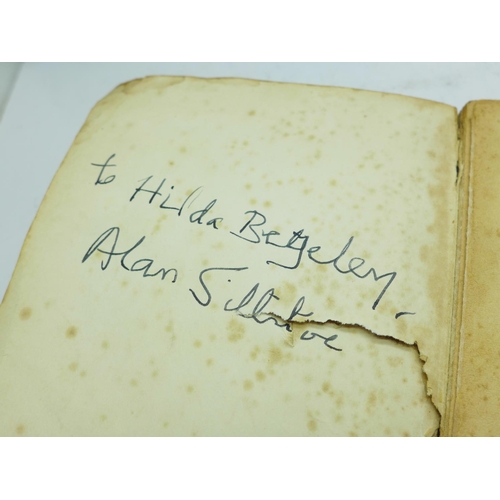 to Hilda Betgeley -
Alan Sillitoe